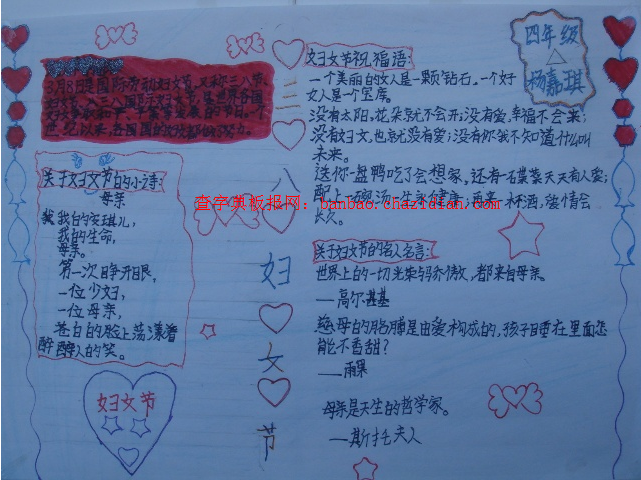 四年级
杨嘉琪
3月8日是国际劳动妇女节,又称三八节、
妇女节、八三八国际妇女节,是世界各国
世纪以来,各国
关于妇女节的小诗:
母亲
我的生命,
母亲。
第一次睁开眼,
一位少妇,
一位母亲,
苍白的脸上荡漾着
醉人的笑。
妇女节
三
八
妇
女
节
妇女节祝福语:
一个美丽的女人是一颗钻石。一个好
女人是一个宝库。
没有太阳,花朵总不会开;没有爱,幸福不会来;
没有妇女,也总没有爱;没有你我不知道什么叫
未来。
送你一盘鸭吃了会想家,还有一碟菜天天有人爱;
配上一碗汤一生永健康;再来一杯酒,爱情会
长久。
查字典板报网:banbao.chazidian.com
关于妇女节的名人名言:
世界上的一切光荣和骄傲,都来自母亲。
——高尔基
慈母的胳膊是由爱构成的,孩子睡在里面怎
能不香甜?
——雨果
母亲是天生的哲学家。
——斯托夫人